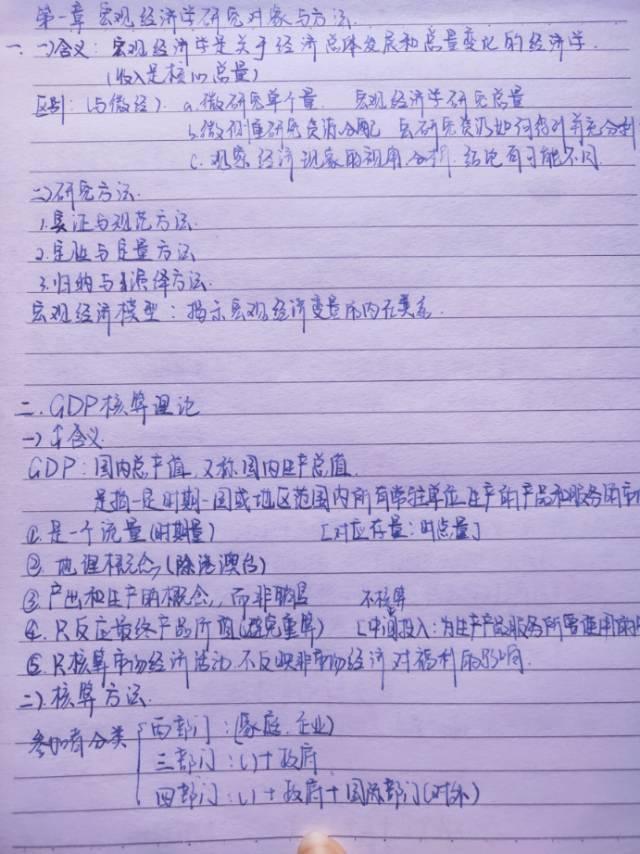 第一章 宏观经济学研究对象与方法
一、一)含义：宏观经济学是关于经济总体发展和总量变化的经济学.
(收入是核心总量)
区别：(与微经)、a.微研究单个量 宏观经济学研究总量
b.微研究资源分配 宏研究资源如何得到充分利
c.观察经济现象的视角、分析、结论有可能不同.
二)研究方法.
1.实证与规范方法.
2.定性与定量方法
3.归纳与演绎方法.
宏观经济模型：揭示宏观经济变量的内在关系.
二.GDP核算理论
一)含义.
GDP：国内总产值,又称国内生产总值.
是指一定时期一国或地区范围内所有常驻单位生产的产品和服务的市
①.是一个流量(时期量) [对应存量：时点量]
②.地理概念,(除港澳台)
③.产出和生产的概念,而非销售 不核算
④.只反应最终产品价值(避免重算) [中间投入：为生产产品服务所需使用的
⑤.只核算市场经济活动,不反映非市场经济对福利的影响.
二)、核算方法.
参加者分类 两部门：(家庭.企业)
三部门：( )+政府
四部门：( )+政府+国际部门(对外)